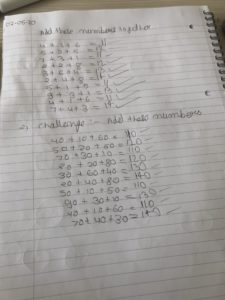 Add these numbers together
4 + 1 + 6 = 11
7 + 3 + 1 = 11
2 + 2 + 8 = 12
3 + 6 + 4 = 13
2 + 4 + 8 = 14
5 + 1 + 5 = 11
9 + 3 + 1 = 13
4 + 1 + 6 = 11
7 + 4 + 3 = 14
2) Challenge :- Add these numbers
40 + 10 + 60 = 110
50 + 20 + 50 = 120
70 + 30 + 10 = 110
20 + 20 + 80 = 120
30 + 60 + 40 = 130
20 + 40 + 80 = 140
50 + 10 + 50 = 110
90 + 30 + 10 = 130
40 + 10 + 60 = 110
70 + 40 + 30 = 140